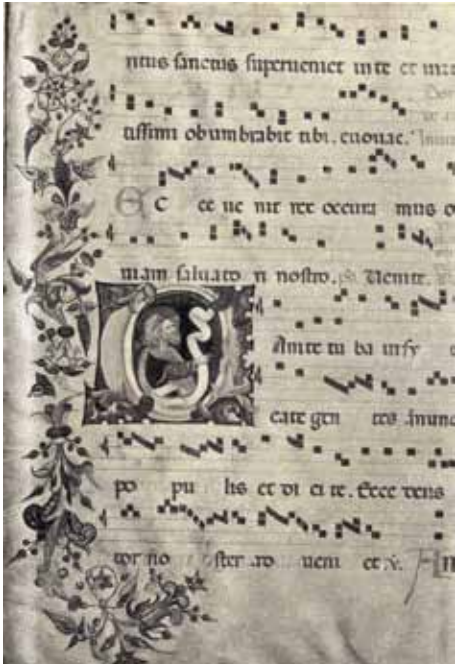 ritus sanctus superueniet in te et uir
tissimi obumbrabit tibi. euouae.
EC ce ue nit rex occura mus o
uiam saluato ri nostro. ps. Uenite.
Anite tu ba in sy
cate gen tes annun
po pu lis et di ci te. Ecce deus
tor no ster ad ueni et. v.